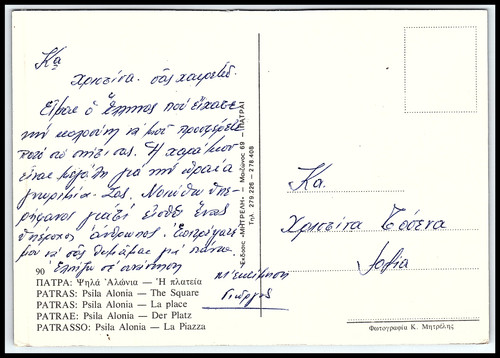 Κα
Χριστίνα. σας χαιρετώ.
Είμαι ο Έλληνας που είχατε
την καλοσύνη να μου προσφέρετε
ποτό στο σπίτι σας. Η χαρά μου
είναι μεγάλη για την ωραία
γνωριμία σας. Νοιώθω υπε-
ρήφανος γιατί είσθε ένας
υπέροχος άνθρωπος. Επιτρέψατέ
μου να σας θυμάμαι για πάντα.
Ελπίζω σε απάντηση
Μ' εκτίμηση
Γιώργος
90
ΠΑΤΡΑ: Ψηλά Ἁλώνια — Ἡ πλατεία
PATRAS: Psila Alonia — The Square
PATRAS: Psila Alonia — La place
PATRAE: Psila Alonia — Der Platz
PATRASSO: Psila Alonia — La Piazza
Ἐκδόσεις «ΜΗΤΡΕΛΗ» — Μαιζῶνος 69 — ΠΑΤΡΑΙ
Τηλ. 279 226 - 278 408
Κα.
Χριστίνα
Sofia
Φωτογραφία Κ. Μητρέλης